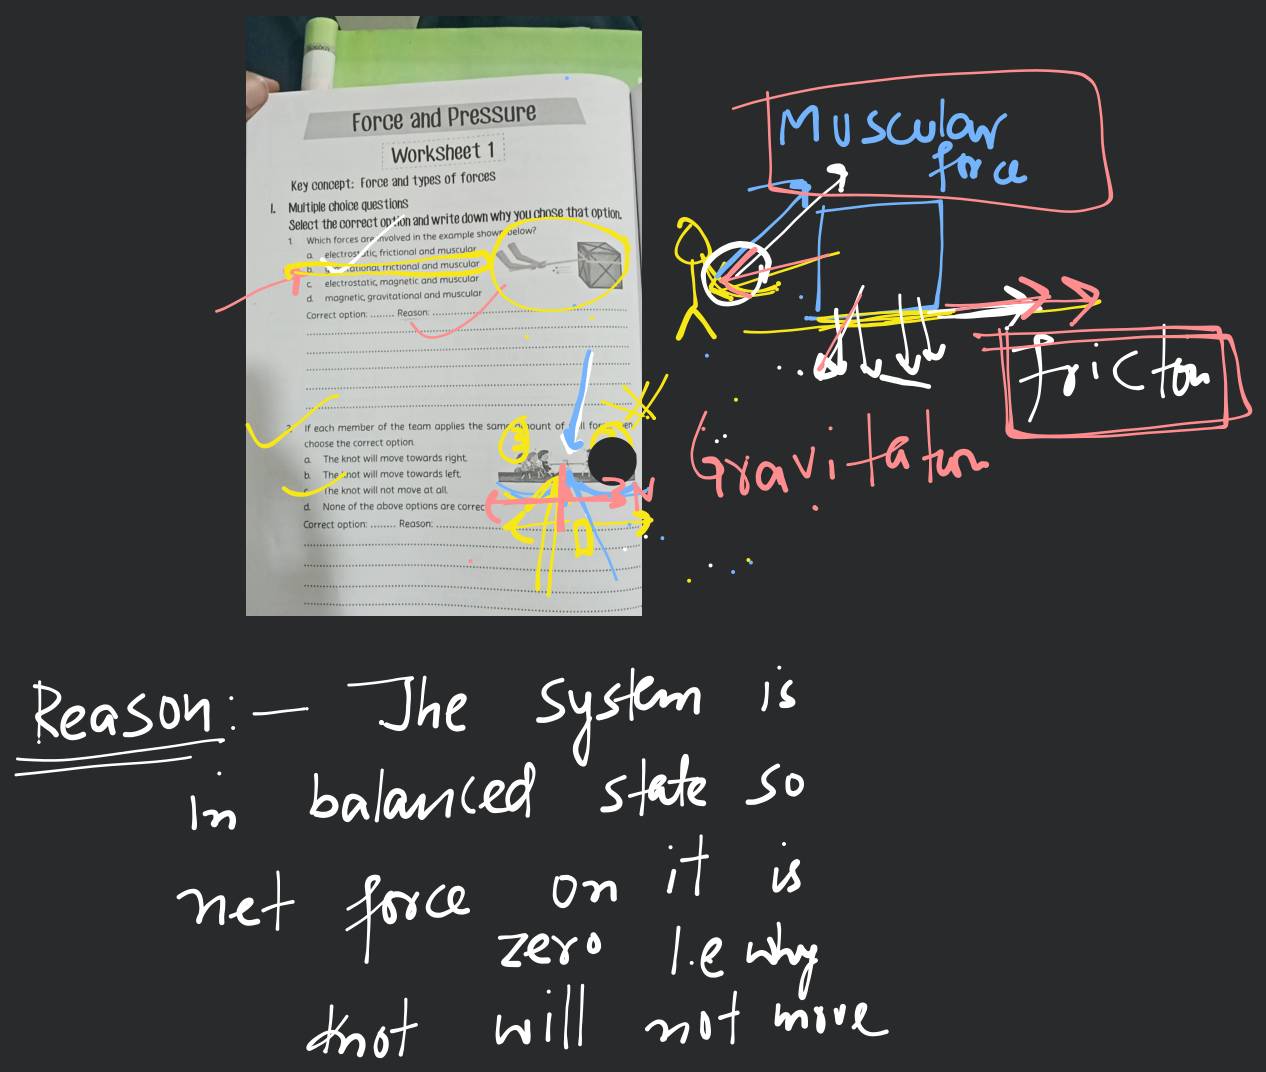 Force and Pressure
Worksheet 1
Key concept: Force and types of forces
I. Multiple choice questions
Select the correct option and write down why you chose that option.
1 Which forces are involved in the example shown below?
a. electrostatic, frictional and muscular
b. gravitational, frictional and muscular
c. electrostatic, magnetic and muscular
d. magnetic, gravitational and muscular
Correct option: ........ Reason:
If each member of the team applies the same amount of
choose the correct option.
a. The knot will move towards right.
b. The knot will move towards left.
c. The knot will not move at all.
d. None of the above options are correc
Correct option: ........ Reason:
Muscular
force
friction
Gravitation
N
Reason:- The system is
in balanced state so
net force on it is
zero I.e why
knot will not move